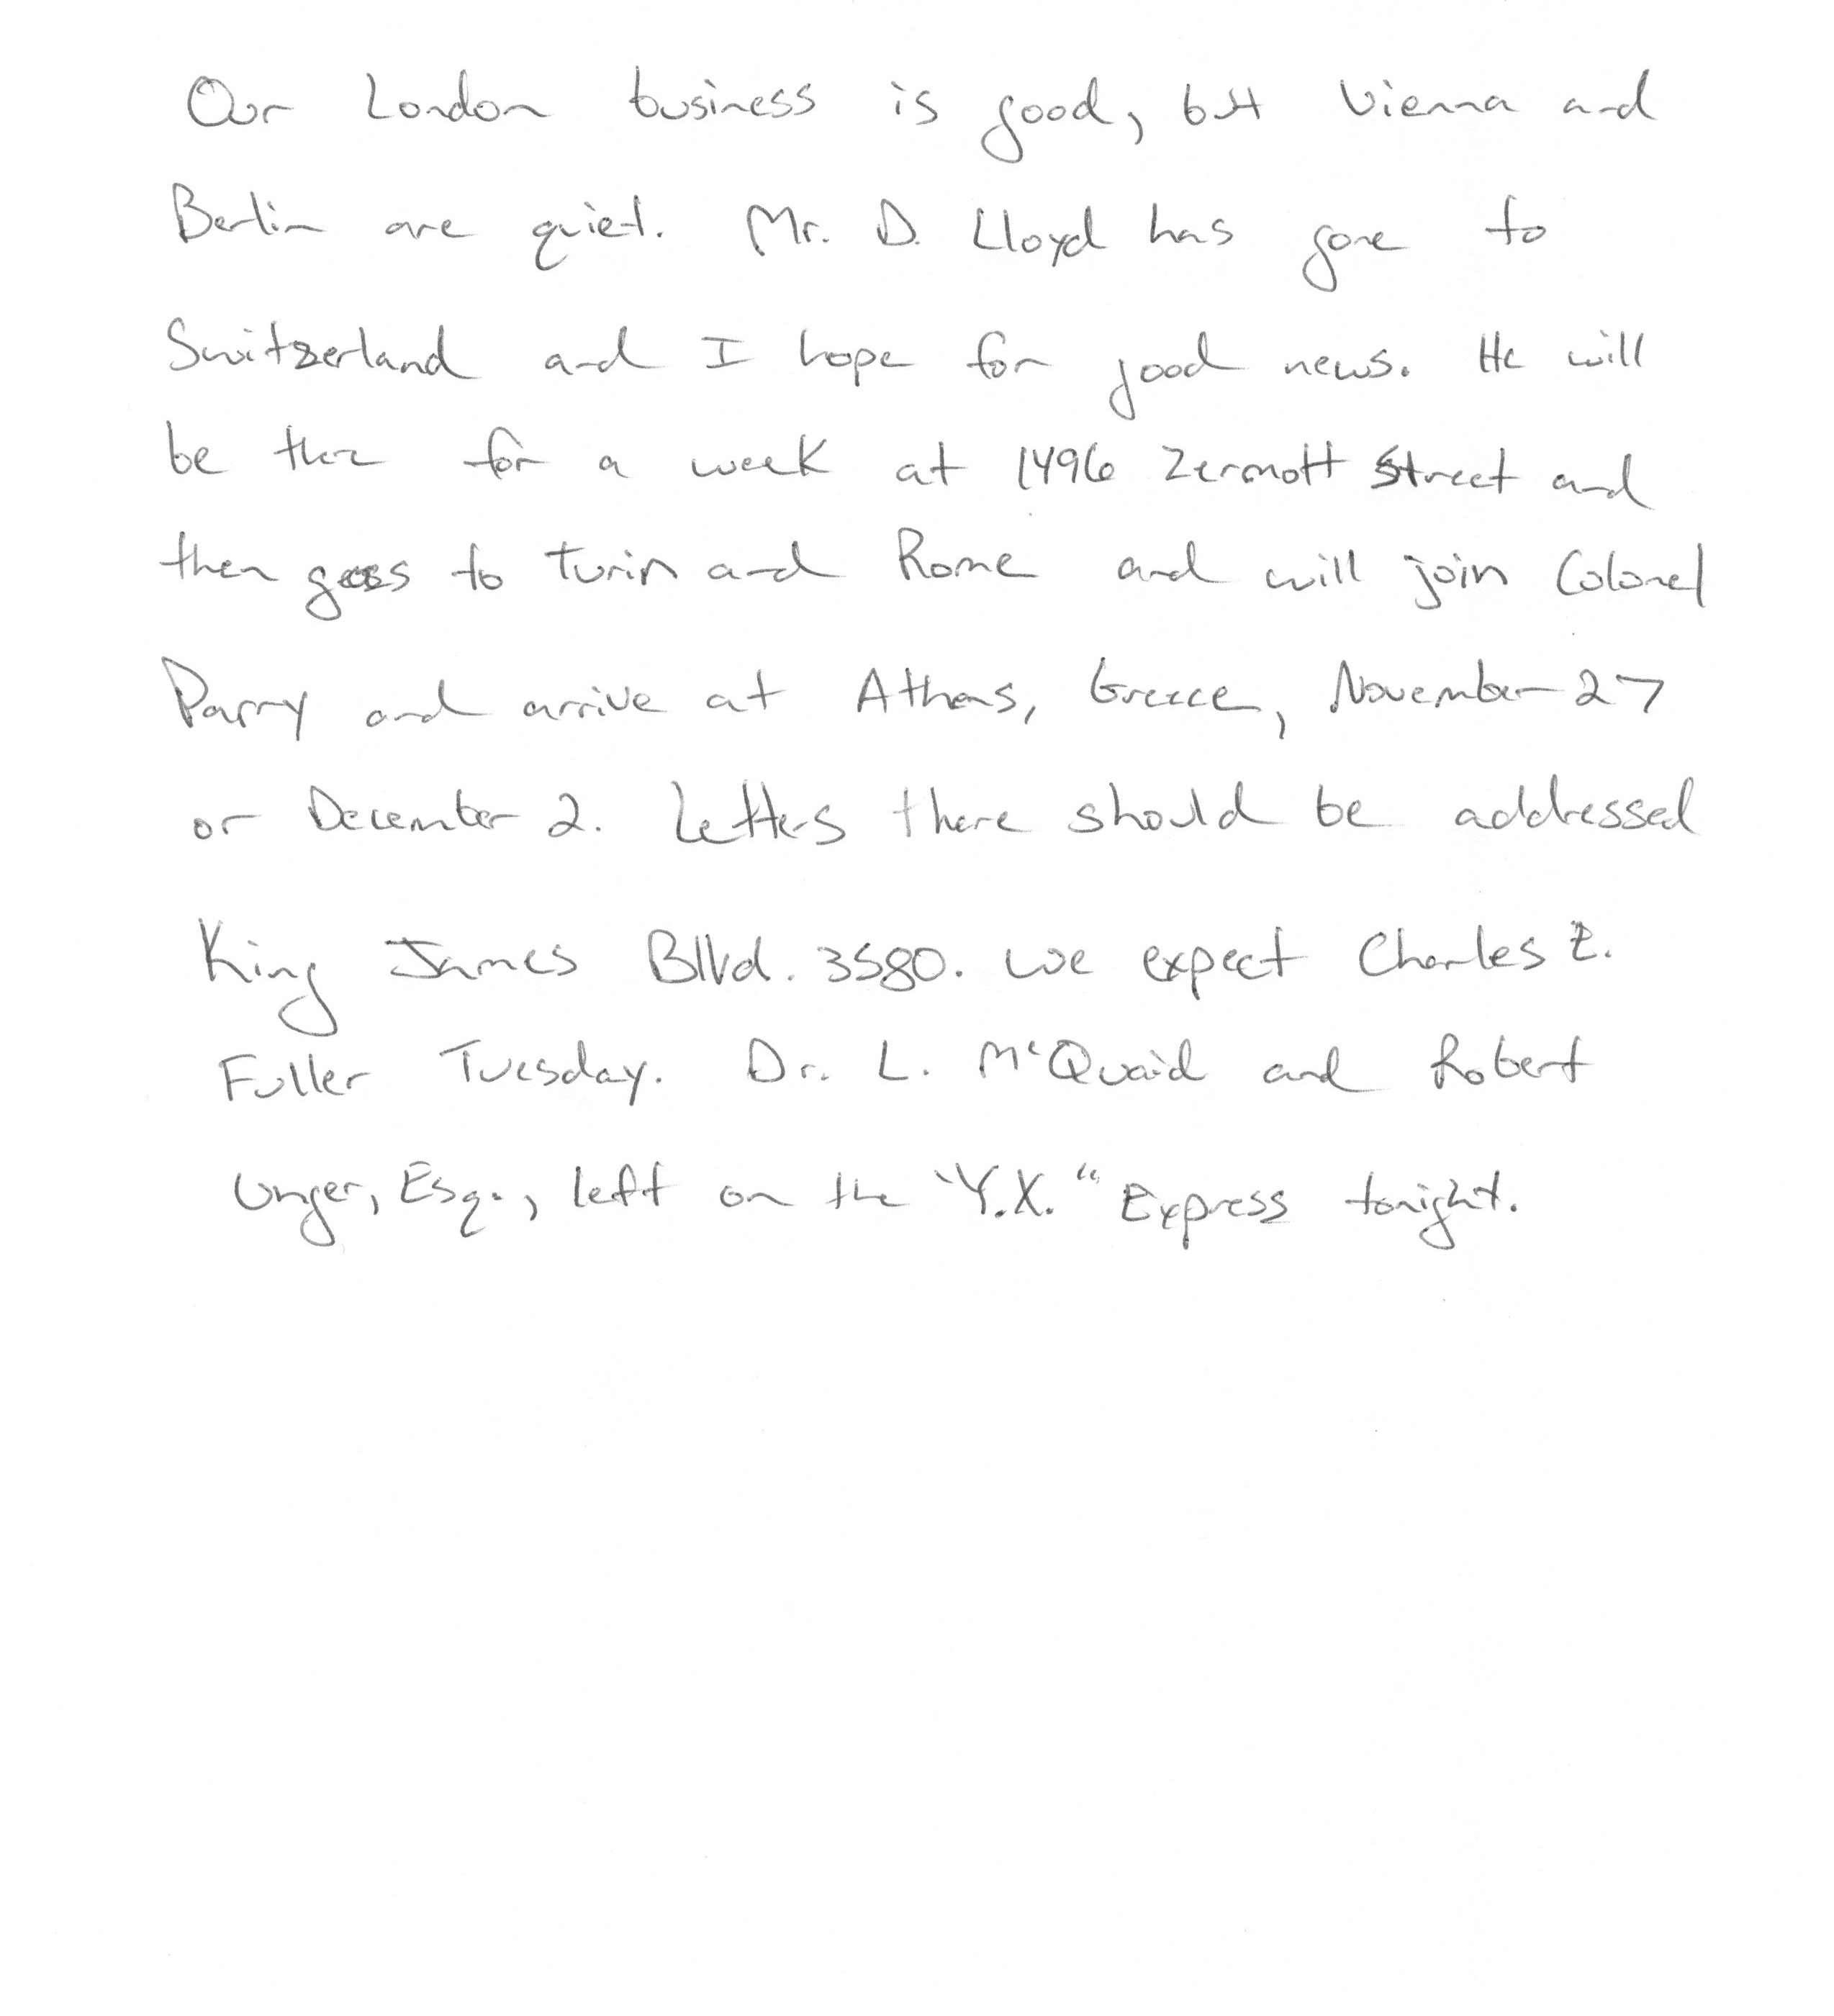 Our London business is good, but Vienna and
Berlin are quiet. Mr. D. Lloyd has gone to
Switzerland and I hope for good news. He will
be there for a week at 1496 Zermott Street and
then goes to Turin and Rome and will join Colonel
Parry and arrive at Athens, Greece, November 27
or December 2. Letters there should be addressed
King James Blvd. 3580. We expect Charles E.
Fuller Tuesday. Dr. L. McQuaid and Robert
Unger, Esq., left on the "Y.X." Express tonight.